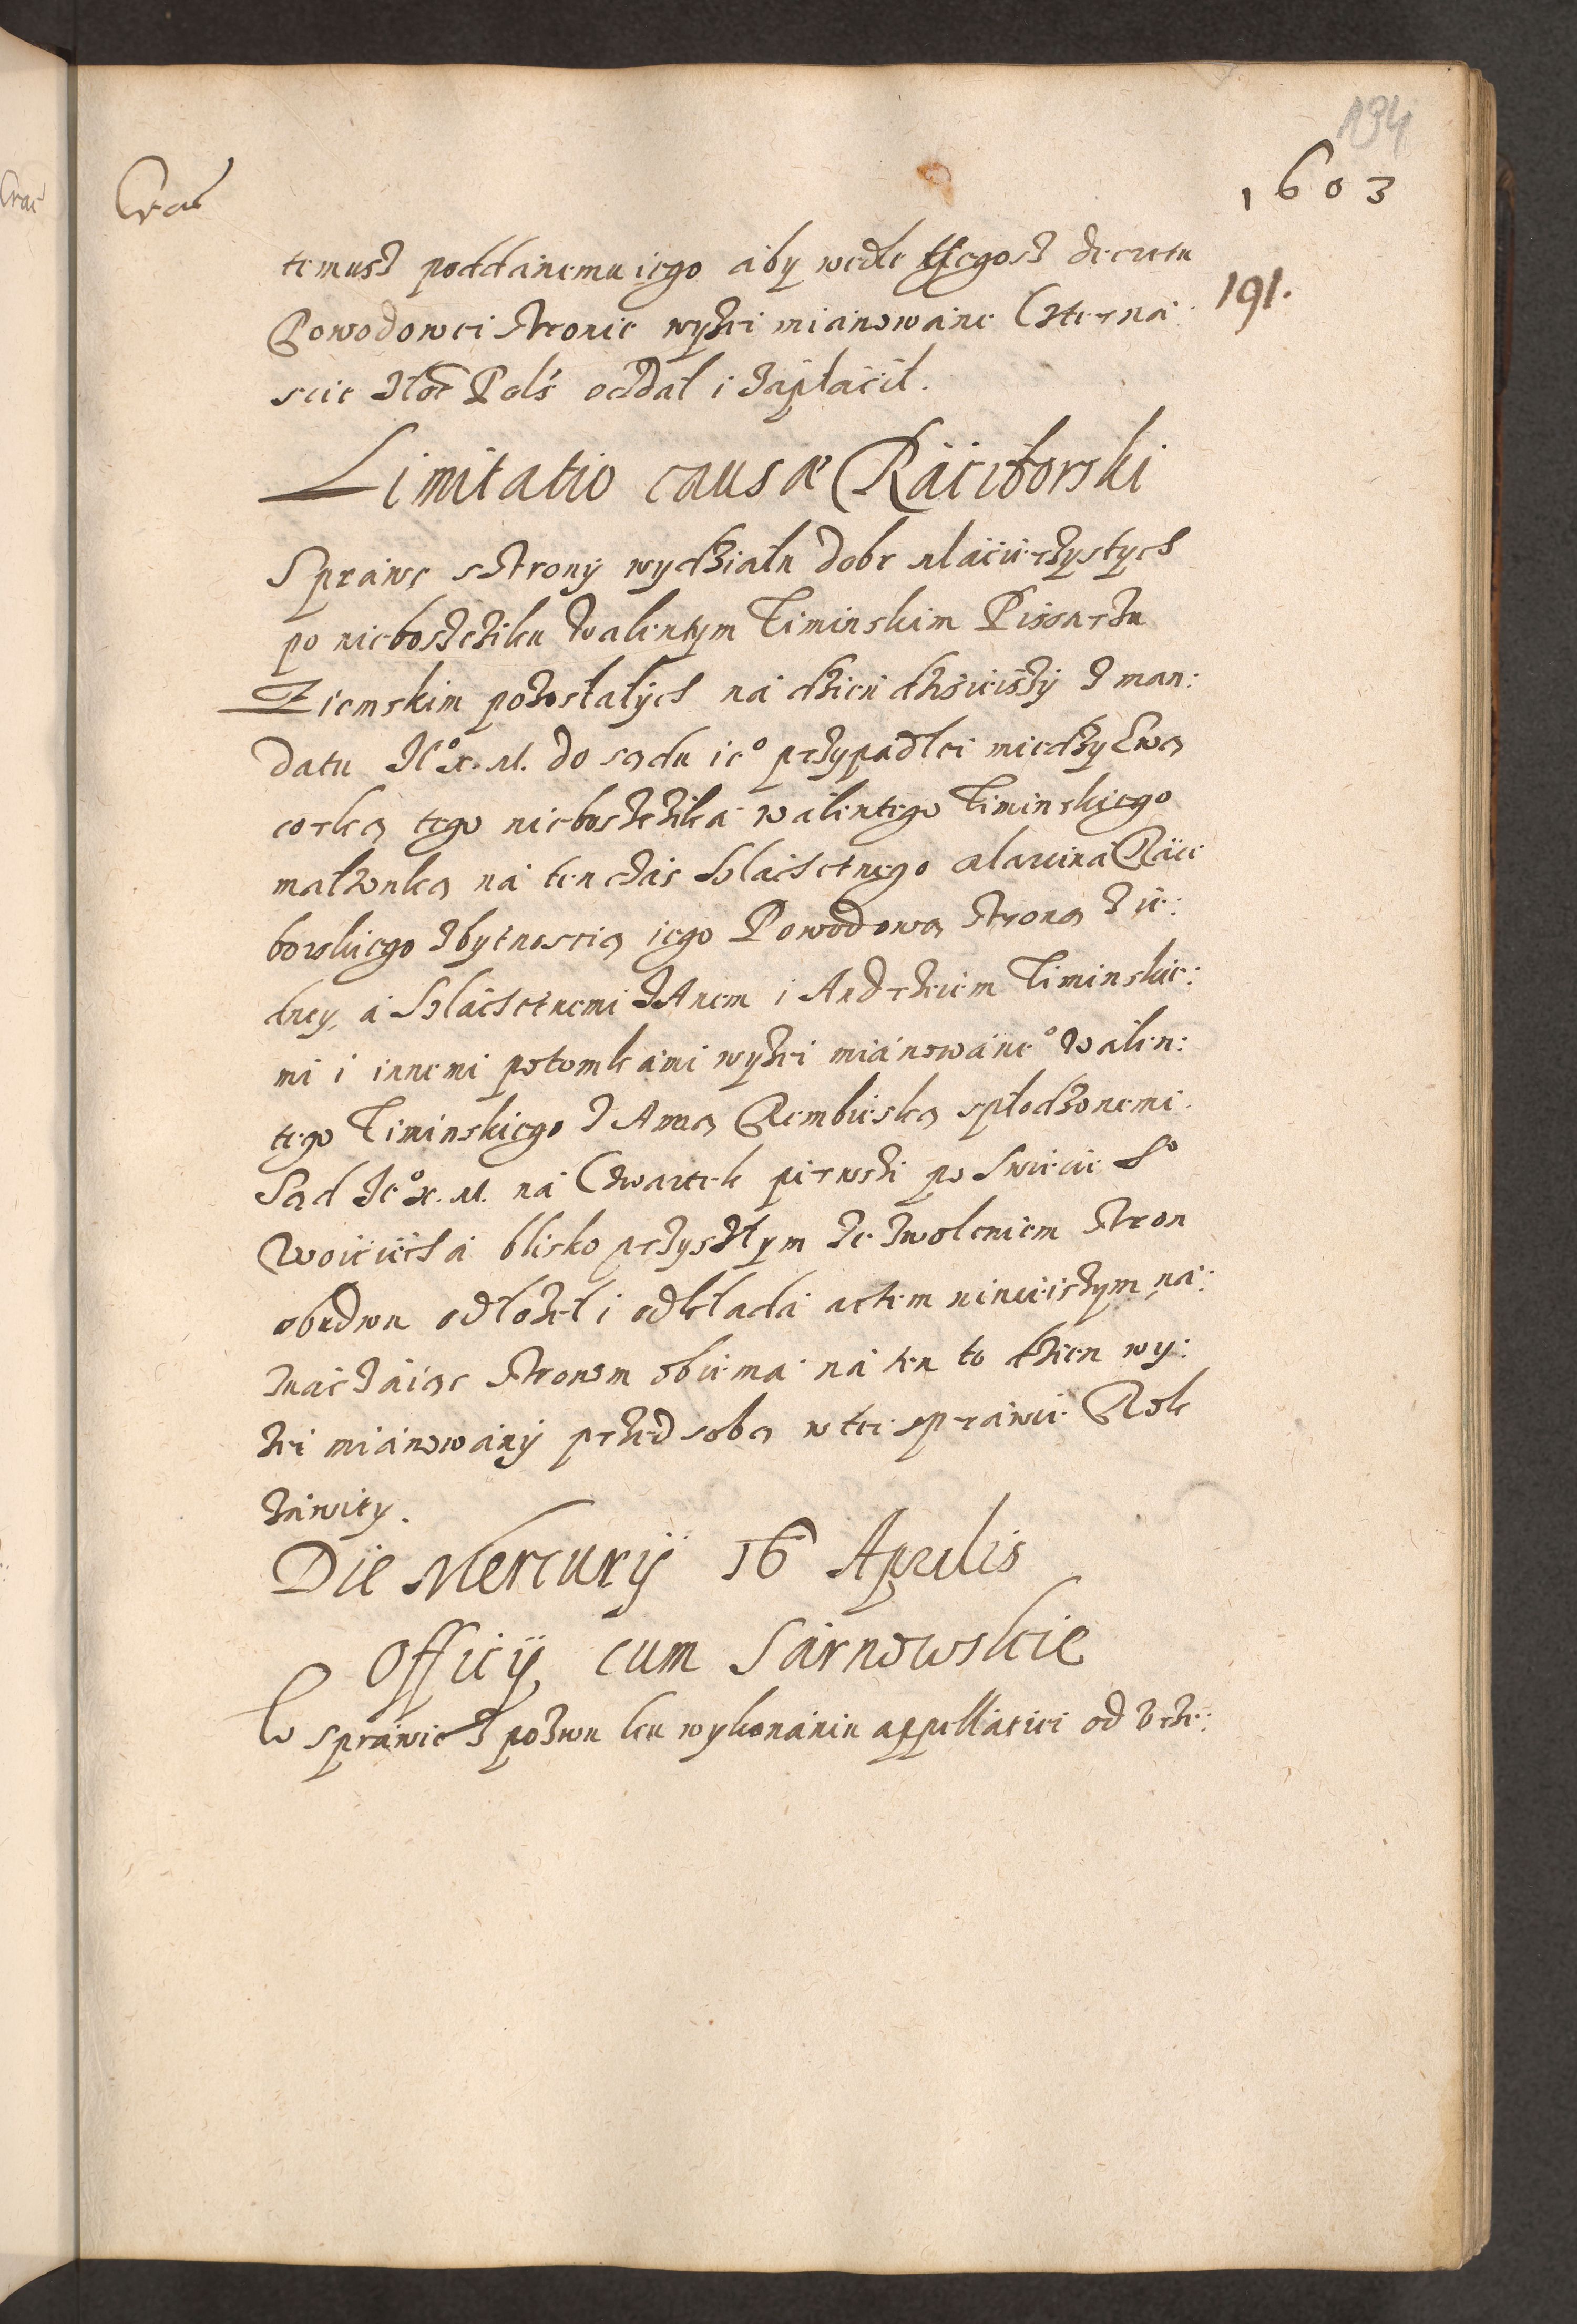 194
Crac
1603
191.
temusz poddanemu iego aby wedle tegosz decretu
Powodowei stronie wyżei mianowane Czterna:
scie złot Pols oddał i zapłacił.
Limitatio causæ Raciborski
Sprawę sstrony wydziału dobr Macierzystych
po nieboszcziku Walentym Timinskim Pissarzu
Ziemskim pozostałych na dzien dzisieiszy z man:
datu Jeº x. M. do sądu ieº przypadłei miedzy Ewą
corką tego nieboszczika Walentego Timinskiego
małżonką na ten czas Slachetnego Marcina Raci
borskiego zbytnoscią iego Powodową stroną z ie:
dney, a Slachetnemi Janem i Andrzeiem Timinskie:
mi i innemi potomkami wyżei mianowaneº Walen:
tego Timinskiego z Anną Rembieską spłodzonemi.
Sąd Jeº x. M. na Czwartek pierwszi po Swiecie Sº
Woiciecha blisko przyszłym ze zwoleniem stron
obudwu odłożeł i odkłada actem ninieiszym na:
znaczaiąc stronom obiema na ten to dzien wy:
żei mianowany przed sobą w tei sprawie Rok
zawity.
Die Mercurij 16 Aprilis
Officij cum Sarnowskie
W sprawie z pozwu ku wykonaniu appellatiei od Urzę: